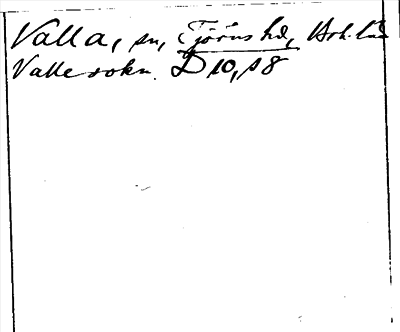 Valla, sn, Tjörns hd, Boh.län
Valle sokn. D 10, s 8